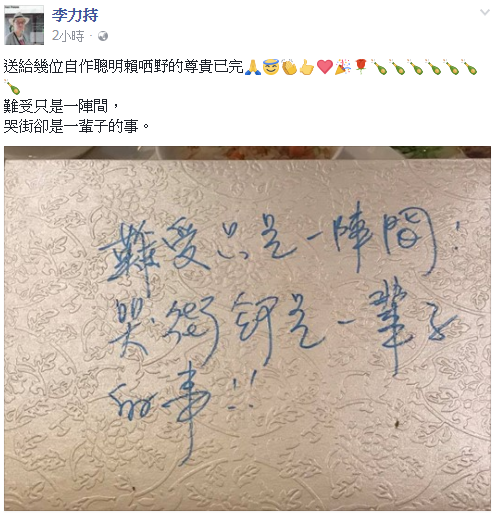 李力持
2小時
送給幾位自作聰明賴哂野的尊貴已完🙏😇👏👍❤️🎉🌹🍾🍾🍾🍾🍾🍾
🍾
難受只是一陣間，
哭街卻是一輩子的事。
難受只是一陣間：
哭街卻是一輩子
的事!!